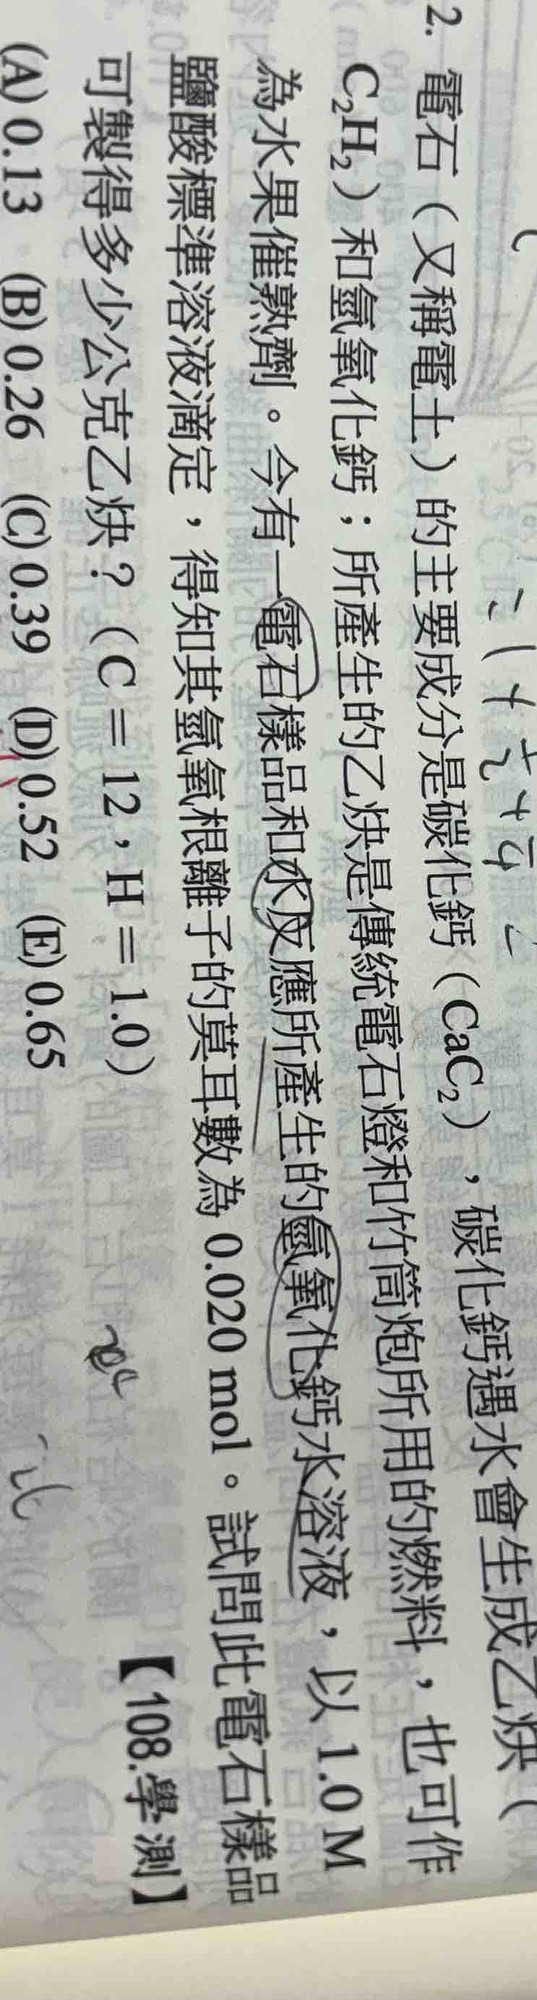 2. 電石（又稱電土）的主要成分是碳化鈣（CaC₂），碳化鈣遇水會生成乙炔（
C₂H₂）和氫氧化鈣；所產生的乙炔是傳統電石燈和竹筒炮所用的燃料，也可作
為水果催熟劑。今有一電石樣品和水反應所產生的氫氧化鈣水溶液，以 1.0 M
鹽酸標準溶液滴定，得知其氫氧根離子的莫耳數為 0.020 mol。試問此電石樣品
可製得多少公克乙炔？（C＝12，H＝1.0） 【108.學測】
(A) 0.13 (B) 0.26 (C) 0.39 (D) 0.52 (E) 0.65